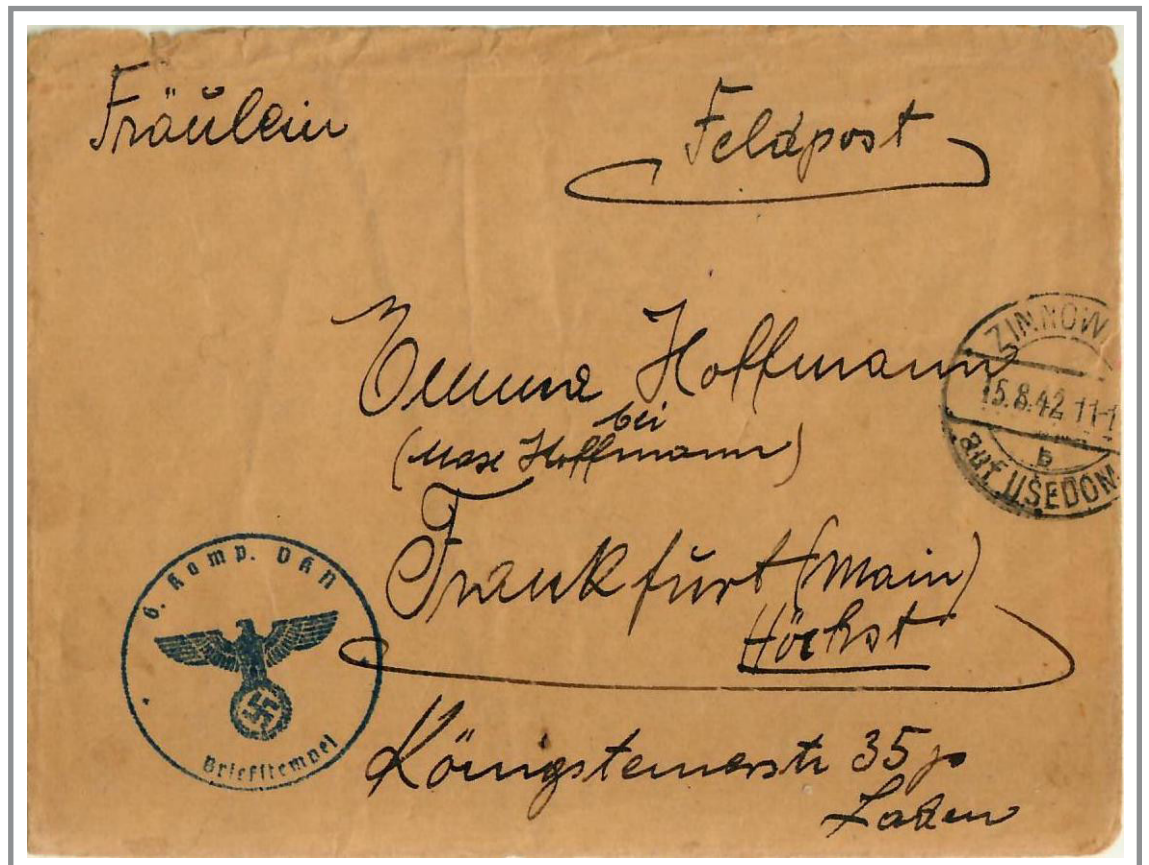 Fräulein
Feldpost
Emma Hoffmann
bei
(Max Hoffmann)
Frankfurt (Main)
Höchst
Königsteinerstr 35 p
Laden
ZINNOW
15.8.42 11-1
b
auf USEDOM
6. Komp. VKN
Briefstempel